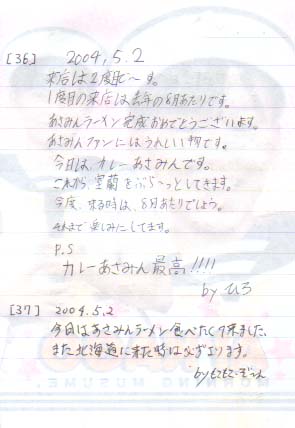 [36] 2004.5.2
来店は2度目で〜す。
1度目の来店は去年の8月あたりです。
あさみんラーメン完成おめでとうございます。
あさみんファンにはうれしい物です。
今日は、カレーあさみんです。
これから、室蘭をぶら〜っとしてきます。
今度、来る時は、8月あたりでしょう。
それまで楽しみにしてます。
P.S
カレーあさみん最高!!!!
by ひろ
[37] 2004.5.2
今日はあさみんラーメン食べたくて来ました、
また北海道に来た時は必ずよります。
by
MORNING MUSUME。